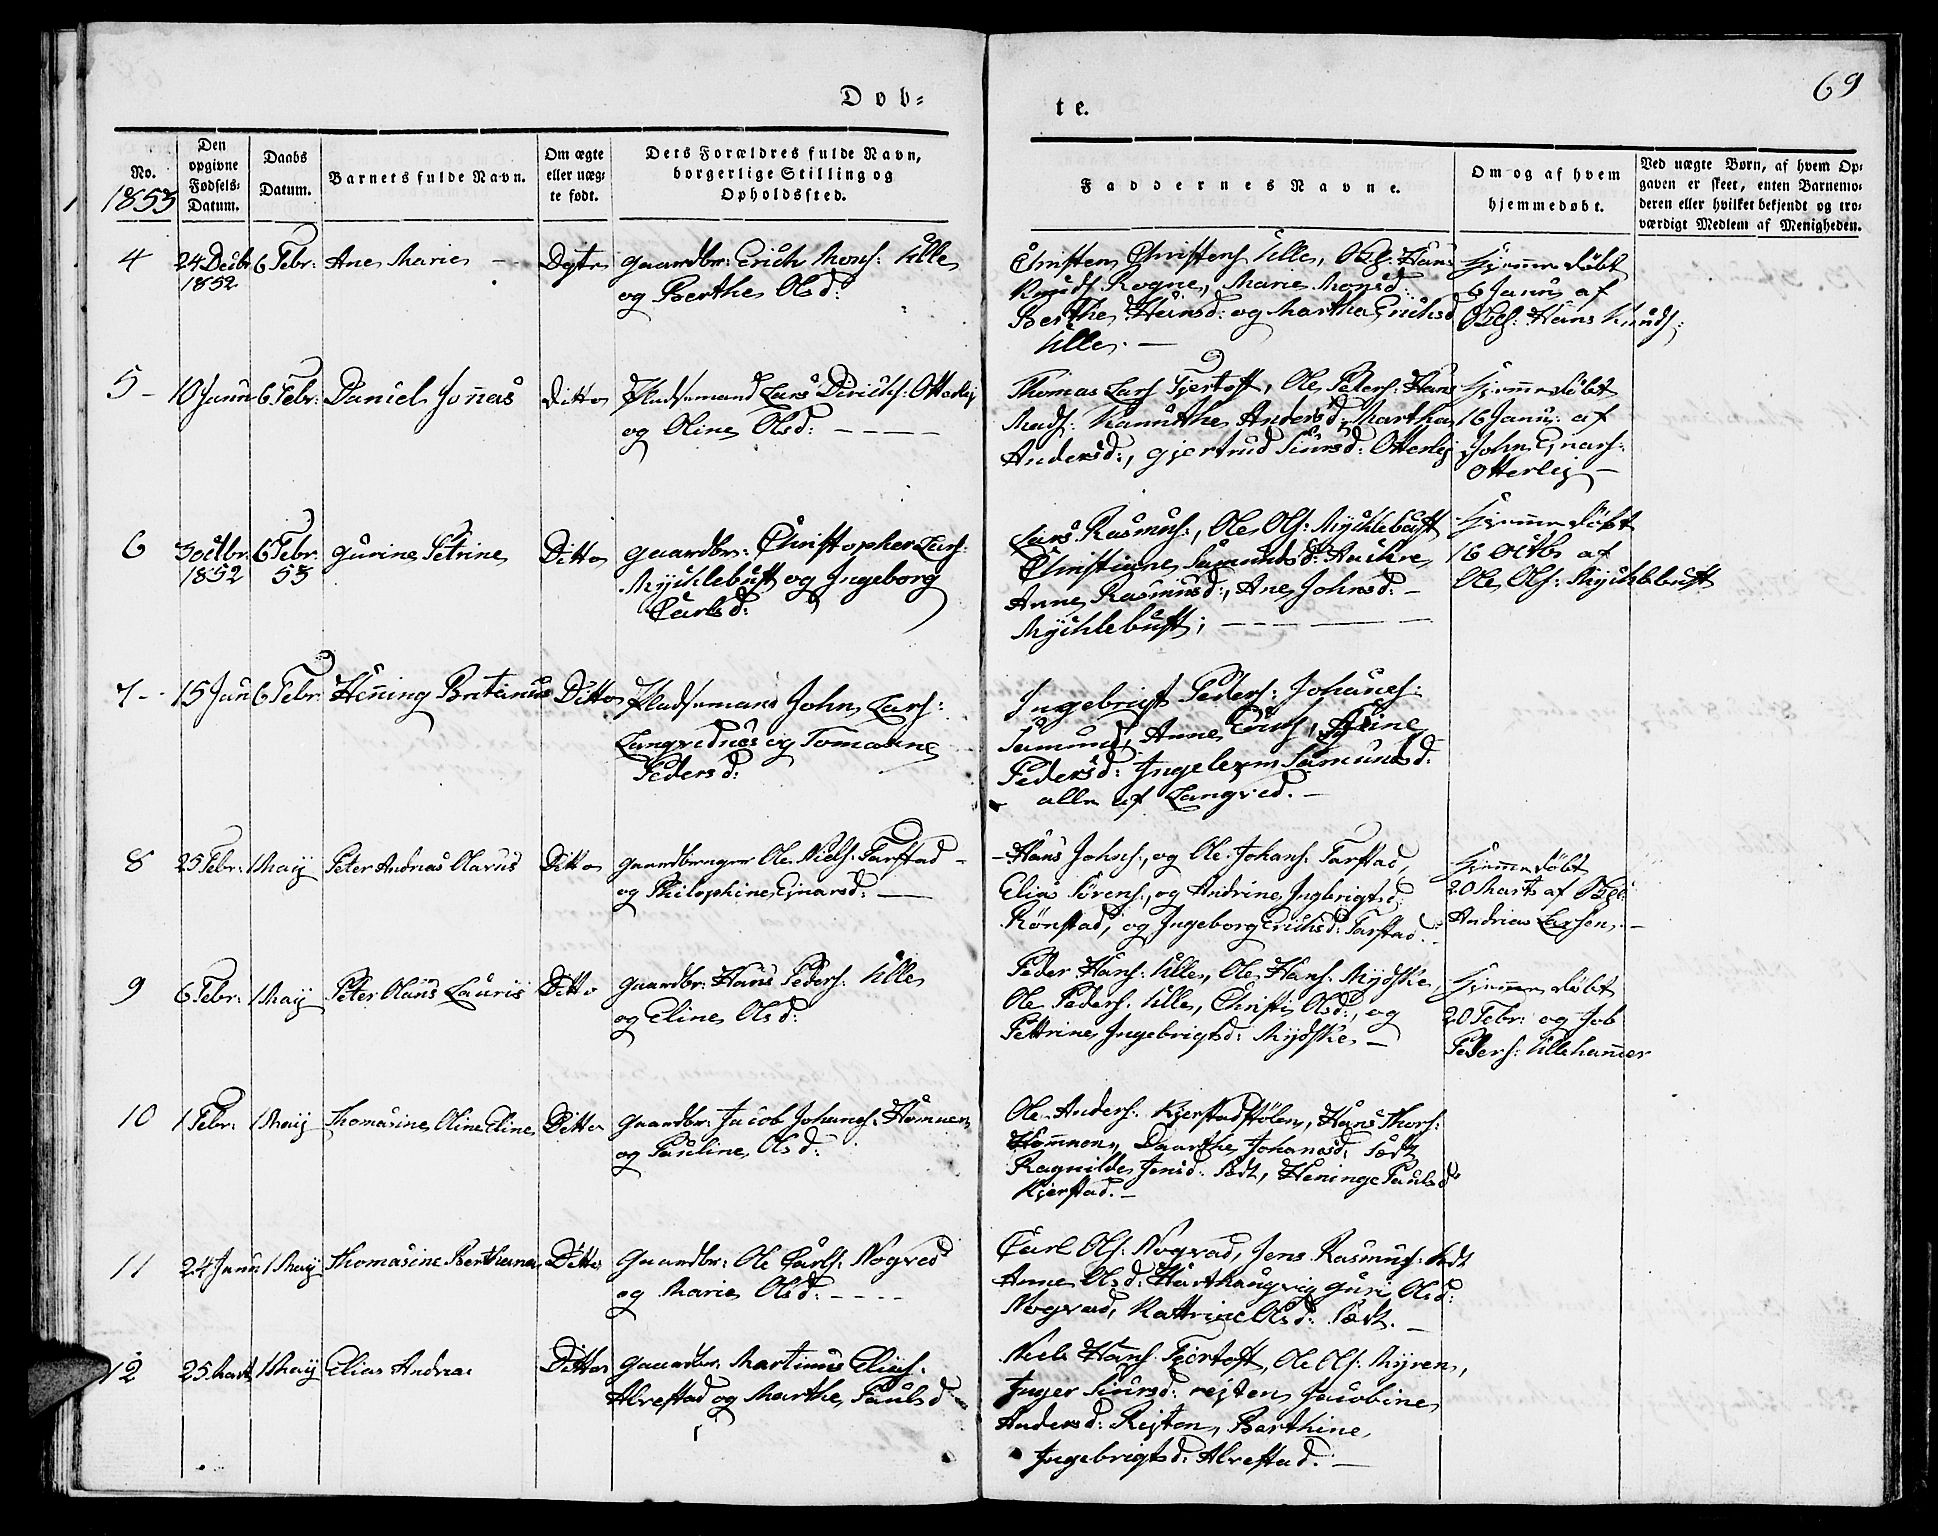 Døb-
te.
69
No.
1853
Den
opgivne
Fødsels-
Datum.
Daabs
Datum.
Barnets fulde Navn.
Om ægte
eller uæg-
te født.
Dets Forældres fulde Navn,
borgerlige Stilling og
Opholdssted.
Faddernes Navne.
Om og af hvem
hjemmedøbt.
Ved uægte Børn, af hvem Op-
gaven er skeet, enten Barnemo-
deren eller hvilket bekjendt og tro-
værdigt Medlem af Menigheden.
4
24 Decbr
1852
6 Febr:
Ane Marie
gaardbr: Erich Mons: Ulle
og Berthe Olsd:
Christen Christens Ulle, Hans
Knuds Rogne, Marie Monsd:
Berthe Hansd: og Martha Erichsd
Ulle. —
Hjemmedøbt
6 Janu af
Hans Knuds:
5 -
10 Janu
6 Febr:
Daniel Jonas
Ditto
Pladsemand Lars Dirichs: Otterlej
og Oline Olsd: — — — —
Thomas Lars Fjertoft, Ole Peders: Hans
Mads: Andersd: Martha
Andersd:, Gjertrud Siursd: Otterlej
Hjemmedøbt
16 Janu: af
John Ejnars:
Otterlej —
6
3 octbr
1852
6 Febr.
53
Gurine Petrine
Ditto
gaardbr: Christopher Lars:
Mychlebust og Ingeborg
Carlsd:
Lars Rasmus:, Ole Ols: Mychlebust
Christiane Samundsd:
Anne Rasmusd:, Ane Johnsd: —
Mychlebust; — — — —
Hjemmedøbt
16 Octb: af
Ole Ols: Mychlebust
7 -
15 Jan
6 Febr
Hening Britanus
Ditto
Pladsemand John Lars:
Langvednes og Tomasine
Pedersd:
Ingebrigt Peders: Johanes:
Samund, Anne Erichs,
Pedersd: Samundsd:
alle af Langved. —
8
25 Febr:
1 Maij
Peter Andreas Olarus
Ditto
gaardbruger Ole Niels: Farstad —
og Philophine Ejnarsd: —
Hans Johns:, og Ole Johans: Farstad,
Elias Sørens:, og Andrine Ingbrigtsd:
Rønstad, og Ingeborg Erichsd: Farstad. -
Hjemmedøbt
20 Marts af
Andreas Larsen. —
9
6 Febr:
1 Maij
Peter Olaus Lauris
Ditto
gaardbr: Hans Peders: Ulle
og Eline Olsd:
Peder Hans: Ulle, Ole Hans: Mydske,
Ole Peders. Ulle, Christi Olsd:, og
Pettrine Ingebrigtsd: Mydske —
Hjemmedøbt
20 Febr: og Job
Peders: Ullehamer
10
1 Febr:
1 Maij
Thomasine Oline Eline
Ditto
gaardbr: Jacob Johanes: Hamnen
og Pauline Olsd:
Ole Anders: Kjerstadstølen, Hans Thors:
Hamnen, Daarthe Johanesd: Sædt
Ragnilde Jensd: Sædt, Heninge Paulsd
Kjerstad. —
11
24 Janu
1 Maij
Thomasine Berthana
Ditto
Gaardbr: Ole Carls: Nogved
og Marie Olsd: - - - -
Carl Ols: Nogvad, Jens Rasmus: Sædt
Anne Olsd: Harthaugvig, Guri Olsd:
Nogvad, Kattrine Olsd: Sædt. —
12
25 Marts
1 Maij
Elias Andreas
Ditto
gaardbr: Martinus Elias:
Alrestad og Marthe Paulsd —
Niels Hans Fjertoft, Ole Ols: Myren,
Inger Siursd: rejten Jacobine
Andersd: Rejten, Berthine
Ingebrigtsd: Alrestad. —